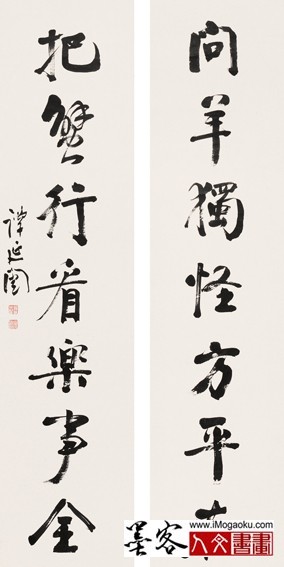 問羊獨怪方平
把蟹行看樂事全
譚延闓
墨客
www.iMogaoku.com
人文書畫